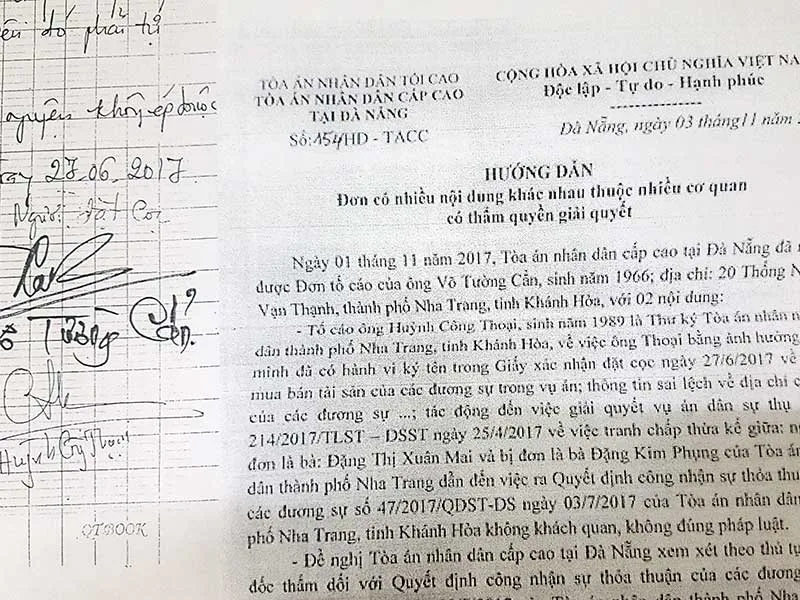 đó phải tự
nguyện không ép buộc
27.06.2017.
Người đặt Cọc
Tường Cẩn.
Huỳnh Công Thoại
QTBOOK
TÒA ÁN NHÂN DÂN TỐI CAO
TÒA ÁN NHÂN DÂN CẤP CAO
TẠI ĐÀ NẴNG
Số:154/HD - TACC
CỘNG HÒA XÃ HỘI CHỦ NGHĨA VIỆT NA
Độc lập - Tự do - Hạnh phúc
Đà Nẵng, ngày 03 tháng 11 năm 2
HƯỚNG DẪN
Đơn có nhiều nội dung khác nhau thuộc nhiều cơ quan
có thẩm quyền giải quyết
Ngày 01 tháng 11 năm 2017, Tòa án nhân dân cấp cao tại Đà Nẵng đã n
được Đơn tố cáo của ông Võ Tường Cẩn, sinh năm 1966; địa chỉ: 20 Thống N
Vạn Thạnh, thành phố Nha Trang, tỉnh Khánh Hòa, với 02 nội dung:
- Tố cáo ông Huỳnh Công Thoại, sinh năm 1989 là Thư ký Tòa án nhân n
dân thành phố Nha Trang, tỉnh Khánh Hòa, về việc ông Thoại bằng ảnh hưởng
mình đã có hành vi ký tên trong Giấy xác nhận đặt cọc ngày 27/6/2017 về
mua bán tài sản của các đương sự trong vụ án; thông tin sai lệch về địa chỉ c
của các đương sự ...; tác động đến việc giải quyết vụ án dân sự thụ
214/2017/TLST – DSST ngày 25/4/2017 về việc tranh chấp thừa kế giữa: ng
đơn là bà: Đặng Thị Xuân Mai và bị đơn là bà Đặng Kim Phụng của Tòa án
dân thành phố Nha Trang dẫn đến việc ra Quyết định công nhận sự thỏa thu
các đương sự số 47/2017/QDST-DS ngày 03/7/2017 của Tòa án nhân dân
phố Nha Trang, tỉnh Khánh Hòa không khách quan, không đúng pháp luật.
- Đề nghị Tòa án nhân dân cấp cao tại Đà Nẵng xem xét theo thủ tụ
đốc thẩm đối với Quyết định công nhận sự thỏa thuận của các đương